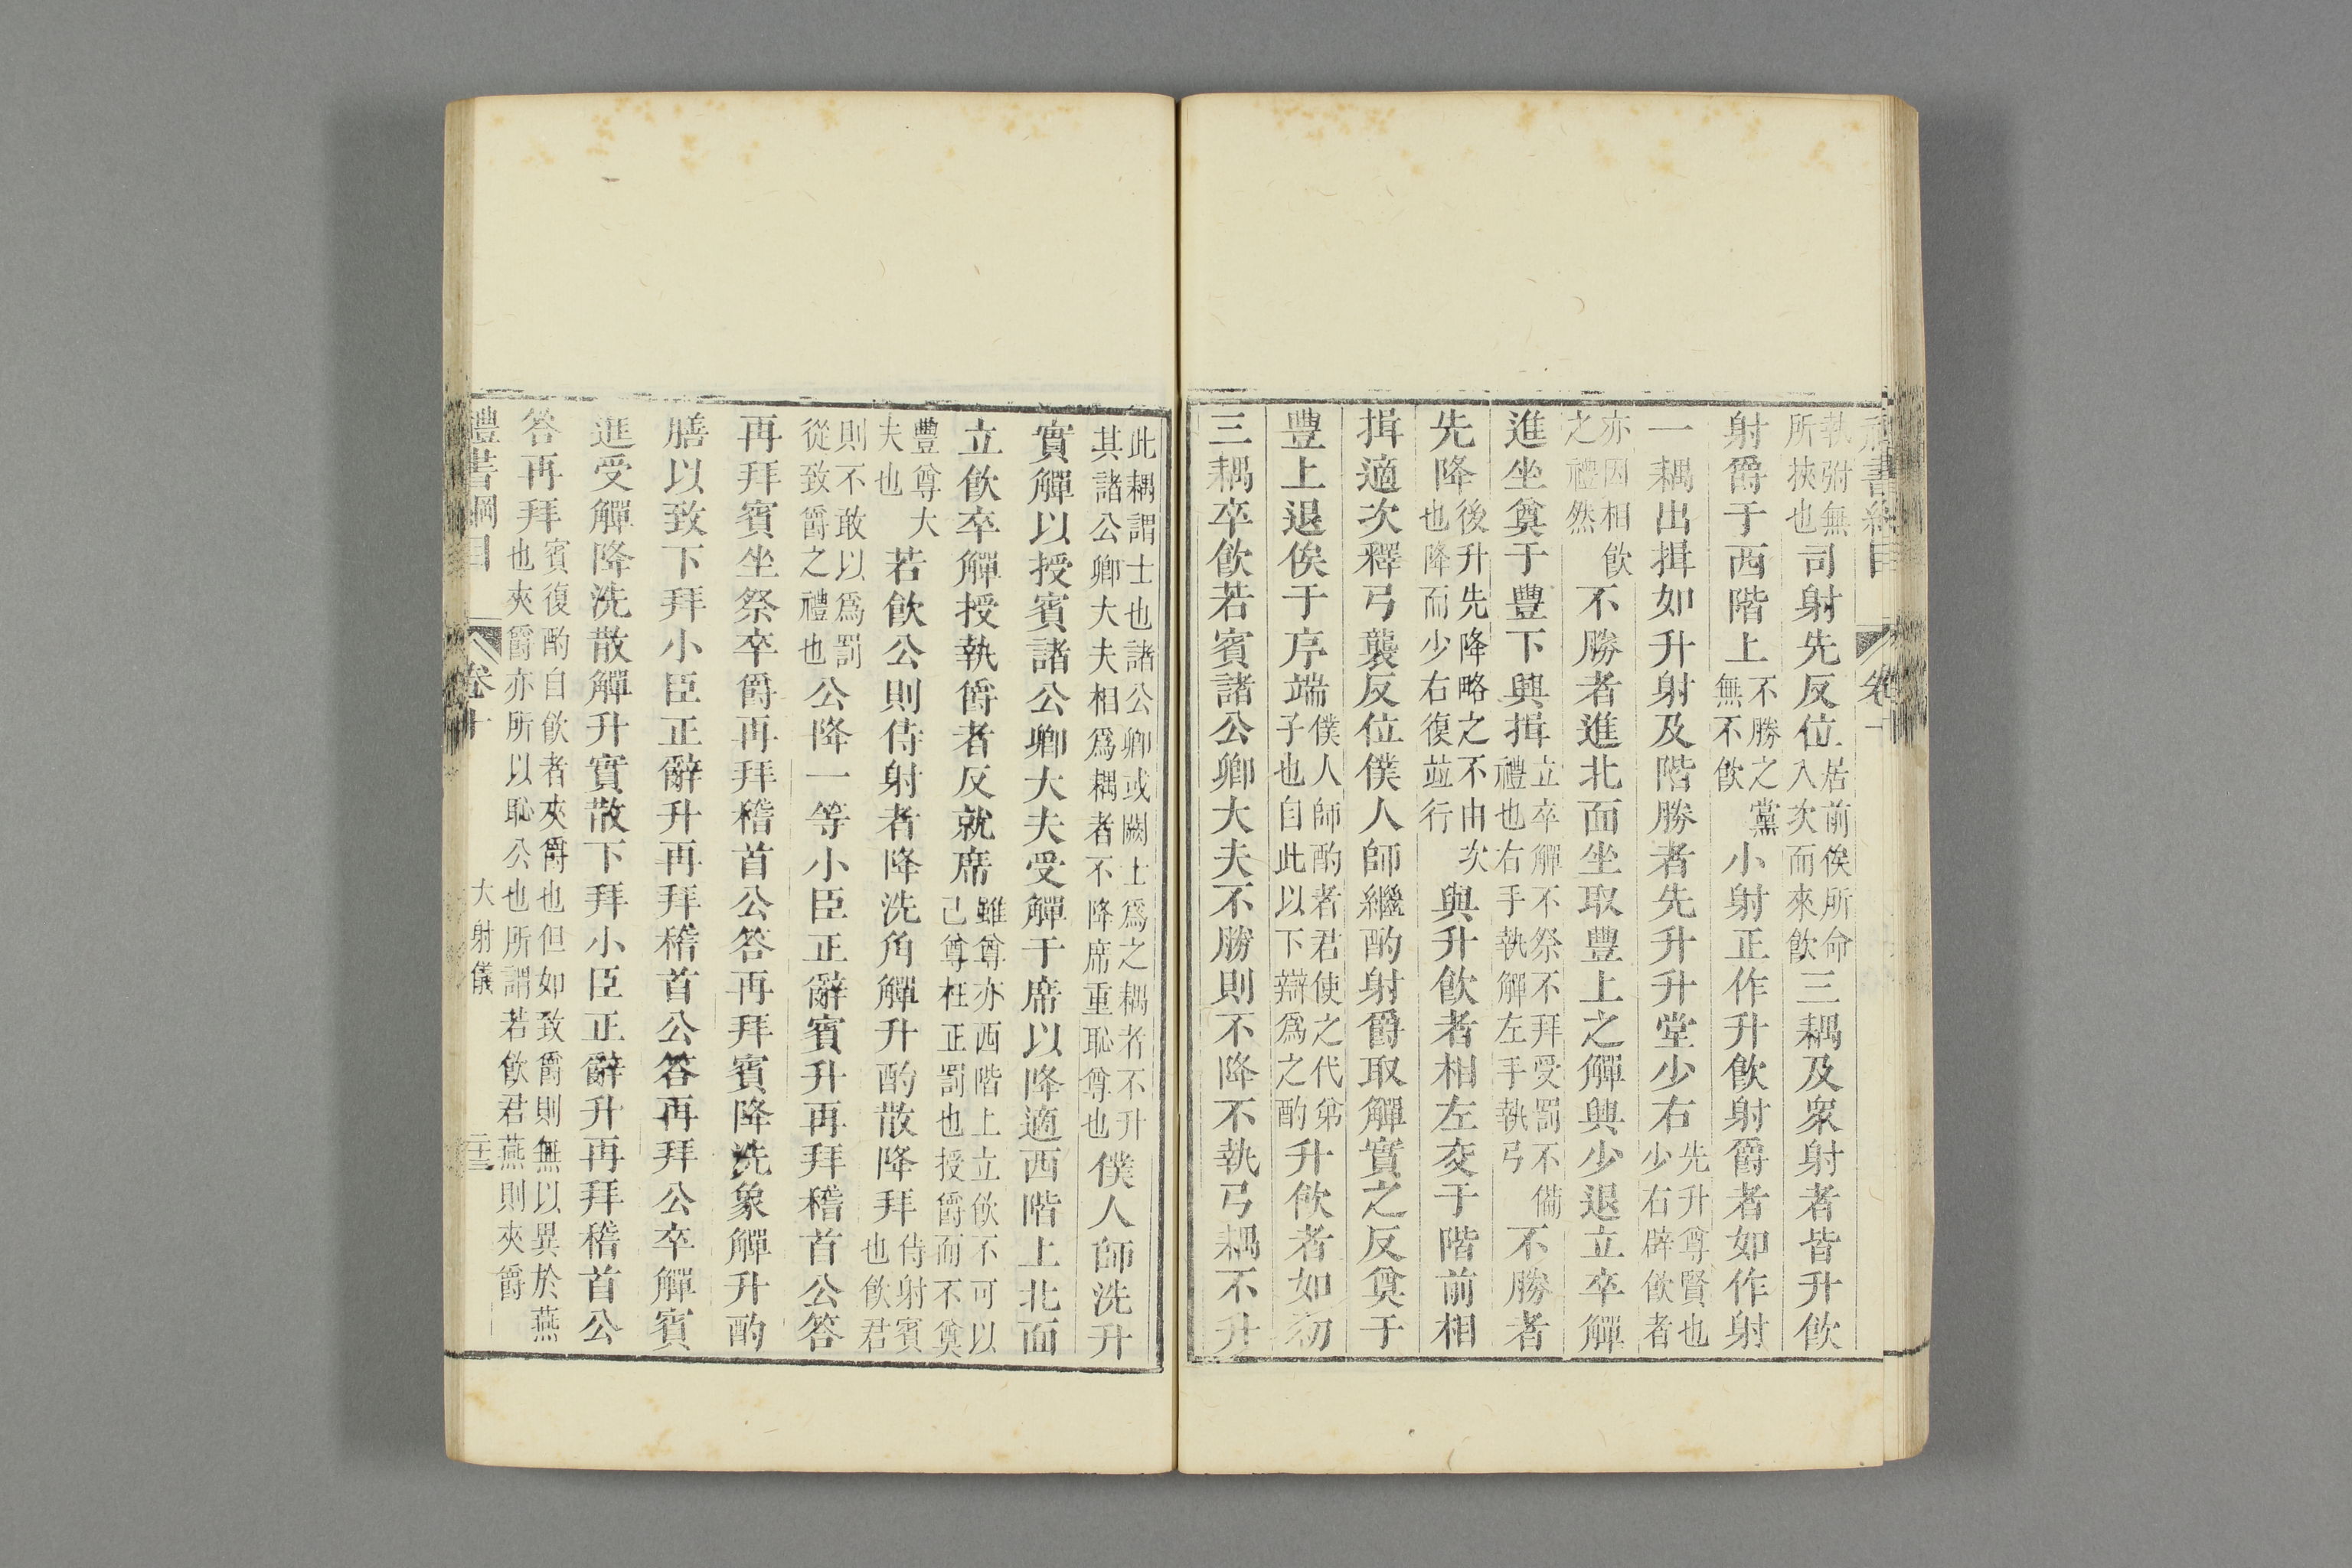 執弣無所挾也司射先反位居前俟所命入次而來飲三耦及衆射者皆升飲
射爵于西階上不勝之黨無不飲小射正作升飲射爵者如作射
一耦出揖如升射及階勝者先升升堂少右先升尊賢也少右辟飲者
亦因相飲之禮然不勝者進北面坐取豐上之觶興少退立卒觶
進坐奠于豐下興揖立卒觶不祭不拜受罰不備禮也右手執觶左手執弓不勝者
先降後升先降略之不由次也降而少右復竝行與升飲者相左交于階前相
揖適次釋弓襲反位僕人師繼酌射爵取觶實之反奠于
豐上退俟于序端僕人師酌者君使之代弟子也自此以下辯爲之酌升飲者如初
三耦卒飲若賓諸公卿大夫不勝則不降不執弓耦不升
此耦謂士也諸公卿或闕士爲之耦者不升其諸公卿大夫相爲耦者不降席重恥尊也僕人師洗升
實觶以授賓諸公卿大夫受觶于席以降適西階上北面
立飲卒觶授執爵者反就席雖尊亦西階上立飲不可以己尊枉正罰也授爵而不奠
豐尊大夫也若飲公則侍射者降洗角觶升酌散降拜侍射賓也飲君
則不敢以爲罰從致爵之禮也公降一等小臣正辭賓升再拜稽首公答
再拜賓坐祭卒爵再拜稽首公答再拜賓降洗象觶升酌
膳以致下拜小臣正辭升再拜稽首公答再拜公卒觶賓
進受觶降洗散觶升實散下拜小臣正辭升再拜稽首公
答再拜賓復酌自飲者夾爵也但如致爵則無以異於燕也夾爵亦所以恥公也所謂若飲君燕則夾爵
禮書綱目 卷十 大射儀 二十三